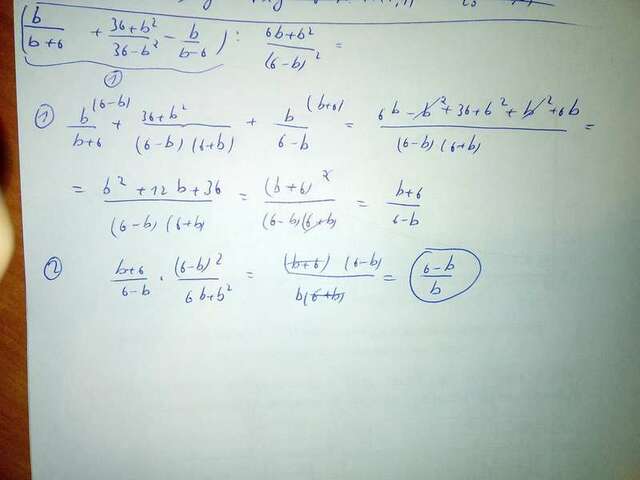 (b/(b+6) + (36+b²)/(36-b²) - b/(b-6)) : (6b+b²)/(6-b)² =
①
① b/(b+6) (6-b) + (36+b²)/((6-b)(6+b)) + b/(6-b) (b+6) = (6b-b²+36+b²+b²+6b)/((6-b)(6+b)) =
= (b²+12b+36)/((6-b)(6+b)) = (b+6)²/((6-b)(6+b)) = (b+6)/(6-b)
② (b+6)/(6-b) · (6-b)²/(6b+b²) = ((b+6)(6-b))/(b(6+b)) = (6-b)/b